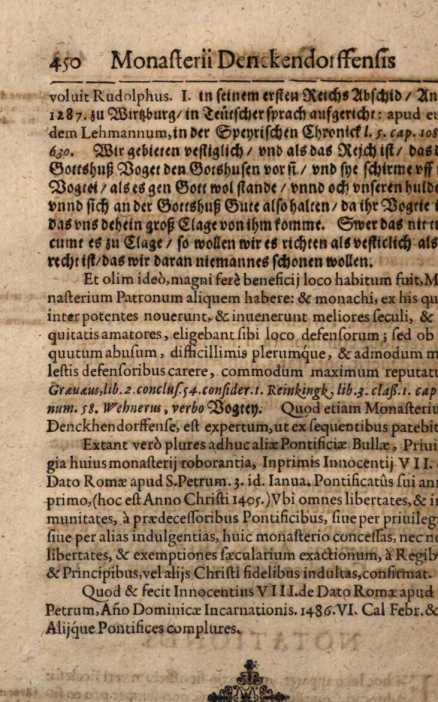 450 Monasterii Denckendorffensis
voluit Rudolphus. I. in seinem ersten Reichs Abschid / An
1287. zu Wirtzburg / in Teütscher sprach aufgericht: apud eu
dem Lehmannum, in der Speyrischen Chronick l. 5. cap. 108
630. Wir gebieten vestiglich / vnd als das Rejch ist / das d
Gottshuß Voget den Gotshusen vor sī / vnd sye schirme vff
Vogtei / als es gen Gott wol stande / vnnd och vnseren hulde
vnnd sich an der Gottshuß Gute also halten / da ihr Vogtie i
das vns dehein groß Clage von ihm komme. Swer das nit t
cumt es zu Clage / so wollen wir es richten als vesticlich als
recht ist / das wir daran niemannes schonen wollen.
Et olim ideò, magni ferè beneficij loco habitum fuit, M
nasterium Patronum aliquem habere: & monachi, ex his qu
inter potentes nouerunt, & inuenerunt meliores seculi, &
quitatis amatores, eligebant sibi loco defensorum; sed ob
quutum abusum, difficillimis plerumque, & admodum m
lestis defensoribus carere, commodum maximum reputatu
Gravæus, lib. 2. conclus. 54. consider. 1. Reinkingk, lib. 3. claß. 1. cap
num. 58. Wehnerus, verbo Vogtey. Quod etiam Monasteriu
Denckhendorffense, est expertum, ut ex sequentibus patebit
Extant verò plures adhuc aliæ Pontificiæ Bullæ, Priui
gia huius monasterij roborantia, Inprimis Innocentij VII.
Dato Romæ apud S. Petrum. 3. id. Ianua. Pontificatûs sui ann
primo, (hoc est Anno Christi 1405.) Vbi omnes libertates, & in
munitates, à prædecessoribus Pontificibus, siue per priuileg
siue per alias indulgentias, huic monasterio concessas, nec no
libertates, & exemptiones sæcularium exactionum, à Regib
& Principibus, vel alijs Christi fidelibus indultas, confirmat.
Quod & fecit Innocentius VIII. de Dato Romæ apud
Petrum, Año Dominicæ Incarnationis. 1486. VI. Cal Febr. &
Alijque Pontifices complures.